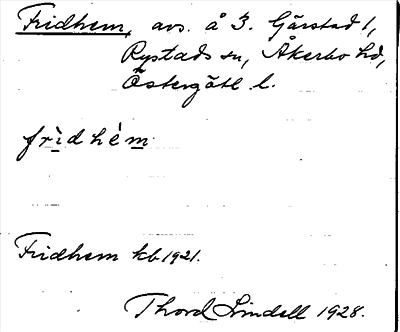 Fridhem, avs. å 3. Gärstad 1,
Rystads sn, Åkerbo hd,
Östergötl l.
frìdhém
Fridhem kb 1921.
Thord Lindell 1928.